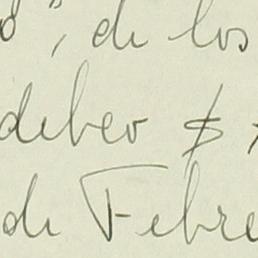 ", de los
debeo $
de Febre